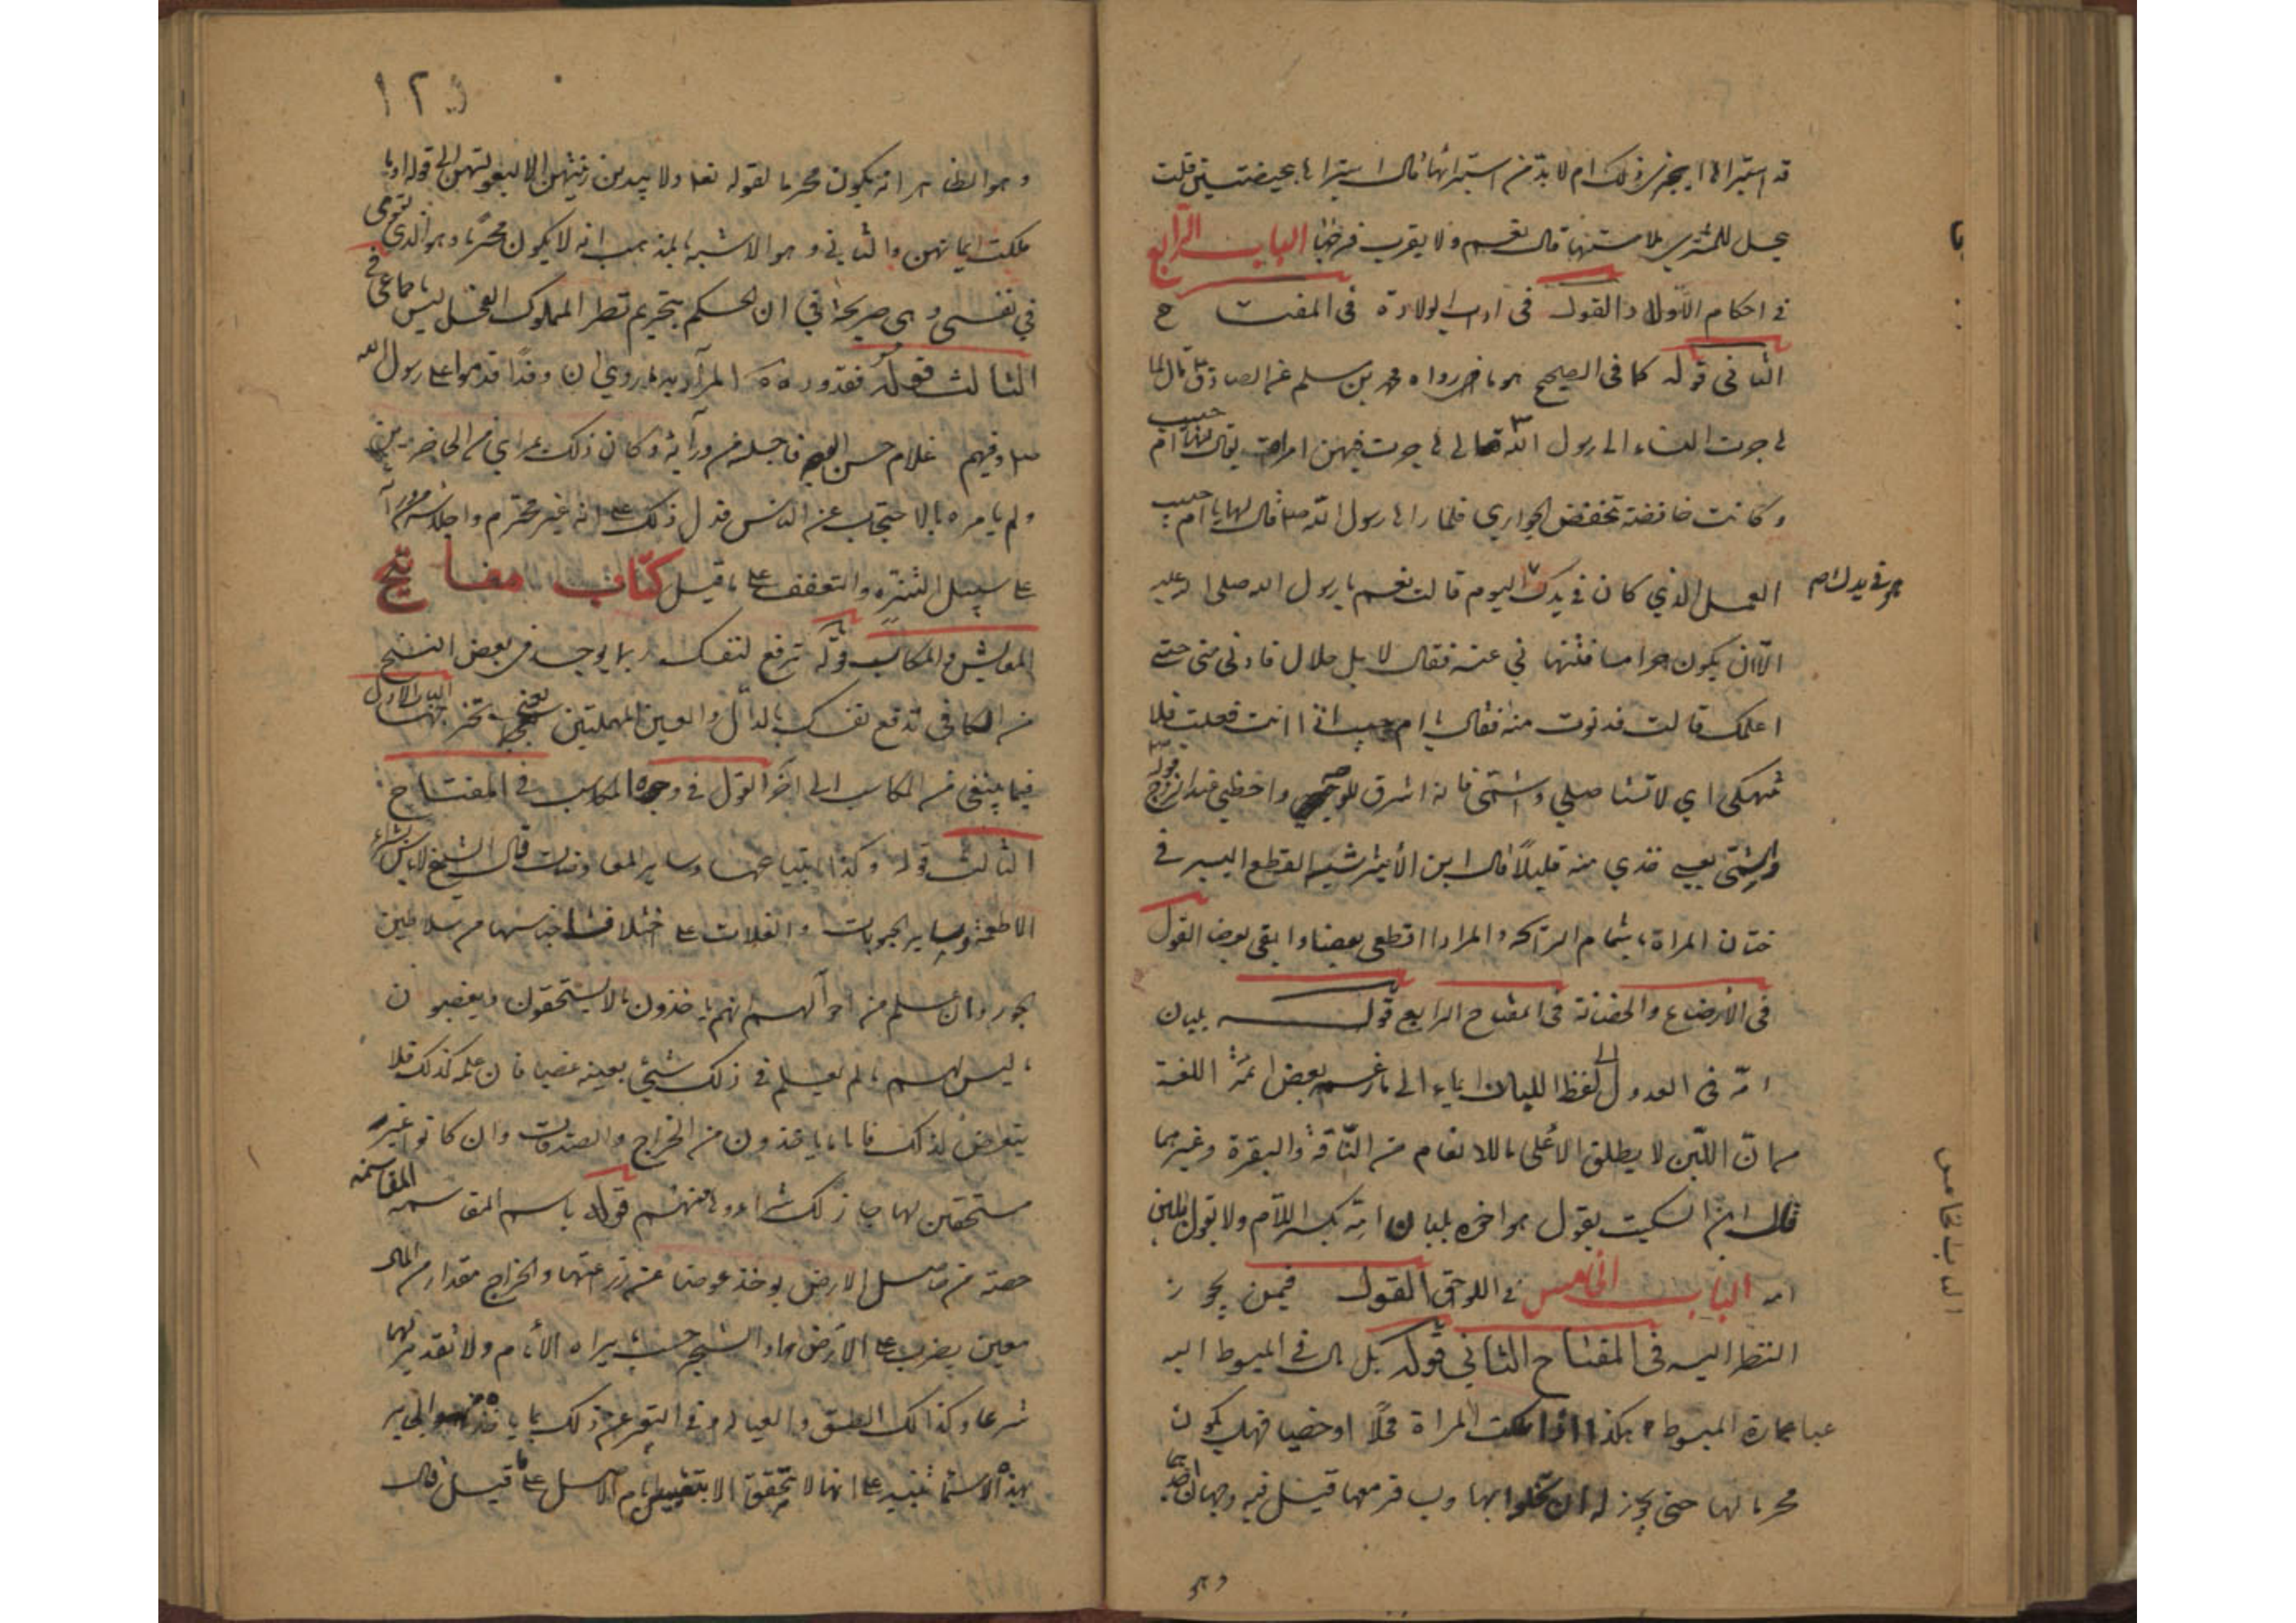 قد استبراها ايجزى ذلك ام لا بدّ من استبرائها قال استبراها بحيضتين قلت
يحل للمشتري ملامستها قال نعم ولا يقرب فرجها الباب الرّابع
في احكام الاولاد القول فى اداب الولادة فى المفتاح
الثانى قوله كما فى الصحيح هو ما رواه محمد بن مسلم عن الصادق ع قال لما
هاجرت النساء الى رسول الله ص هاجرت فيهن امراة يقال لها ام حبيب
وكانت خافضة تخفض الجواري فلما راها رسول الله صلم قال لها يا ام حبيب
العمل الذي كان في يدك اليوم قالت نعم يا رسول الله صلى الله عليه
هو في يدك ام
الا ان يكون حراما فتنهاني عنه فقال لا بل حلال فادني مني حتى
اعلمك قالت فدنوت منه فقال يا ام حبيب اذا انت فعلت فلا
تنهكى اي لا تستاصلي واشمّى فانه اشرق للوجه واحظى عند الزوج قوله
واشمّى يعنى خذي منه قليلاً قال ابن الأثير شبه القطع اليسير في
ختان المراة باشمام الرائحة والمراد اقطعى بعضا وابقى بعضا القول
فى الأرضاع والحضانة فى المفتاح الرابع قوله بلبان
امّه فى العدول الى لفظ اللبان ايماء الى ما زعم بعض ائمّة اللغة
من انّ اللّبن لا يطلق الأعلى ما للانعام من النّاقة والبقرة وغيرهما
قال ابن السكيت يقول هو اخوه بلبان امّه بكسر اللاّم ولا يقول بلبن
امه الباب الخامس في اللواحق القول فيمن يجوز
النظر اليه فى المفتاح الثاني قوله بل مال في المبسوط اليه
عبارة المبسوط هكذا اذا ملكت المراة فحلًا او خصيا فهل يكون
محرما لها حتى يجوز له ان يخلوا بها ويسافر معها قيل فيه وجهان احدهما
وهو
با
الباب الخامس
١٢٥
وهو الظاهر انه يكون محرما لقوله تعا ولا يبدين زينتهن الا لبعولتهن الى قوله او ما
ملكت ايمانهن والثاني وهو الاشبه بالمذهب انه لا يكون محرما وهو الذي تقوى
في نفسى وهى صريحة في ان الحكم بتحريم نظر المملوك الفحل ليس باجماعى في
الثالث قوله فقد ورد المراد به ما روي ان وفدًا قدموا على رسول الله
صلم وفيهم غلام حسن الوجه فاجلسه من ورآئه وكان ذلك بمراي من الحاضرين
ولم يامره بالاحتجاب عن الناس فدل ذلك على انه غير محرم واجلاسه من ورآ
على سبيل التنزه والتعفف على ما قيل كتاب مفاتيح
المعايش والمكاسب قوله ترفع لنفسك ربما يوجد فى بعض النسخ
من الكافى تدفع نفسك بالدال والعين المهملتين يعنى الباب الاول
فيما ينبغى من المكاسب الى آخر القول في وجوه المكاسب في المفتاح
الثالث قوله وكذا ابتياعها وساير المعاوضات قال الشيخ لا باس بشراء
الاطعمة وساير الحبوبات والغلات على اختلاف اجناسها من سلاطين
الجور وان علم من احوالهم انهم ياخذون ما لا يستحقون ويغصبون
ما ليس لهم ما لم يعلم في ذلك شيئ بعينه غصبا فان علم كذلك فلا
يتعرض لذلك فاما ما ياخذون من الخراج والصدقات وان كانوا غير
مستحقين لها جاز ذلك شراءه منهم قوله باسم المقاسمة المقاسمة
حصة من حاصل الارض يوخذ عوضا عن زرعتها والخراج مقدار من المال
معين يضرب على الأرض او الشجر حسب ما يراه الأمام ولا تقدير لهما
شرعا وكذلك الطسق والقبالة وفى التعبير عن ذلك بما ياخذه الجاير
بهذه الاسماء تنبيه على انها لا يتحقق الا بتعيين امام الاصل على ما قيل قال